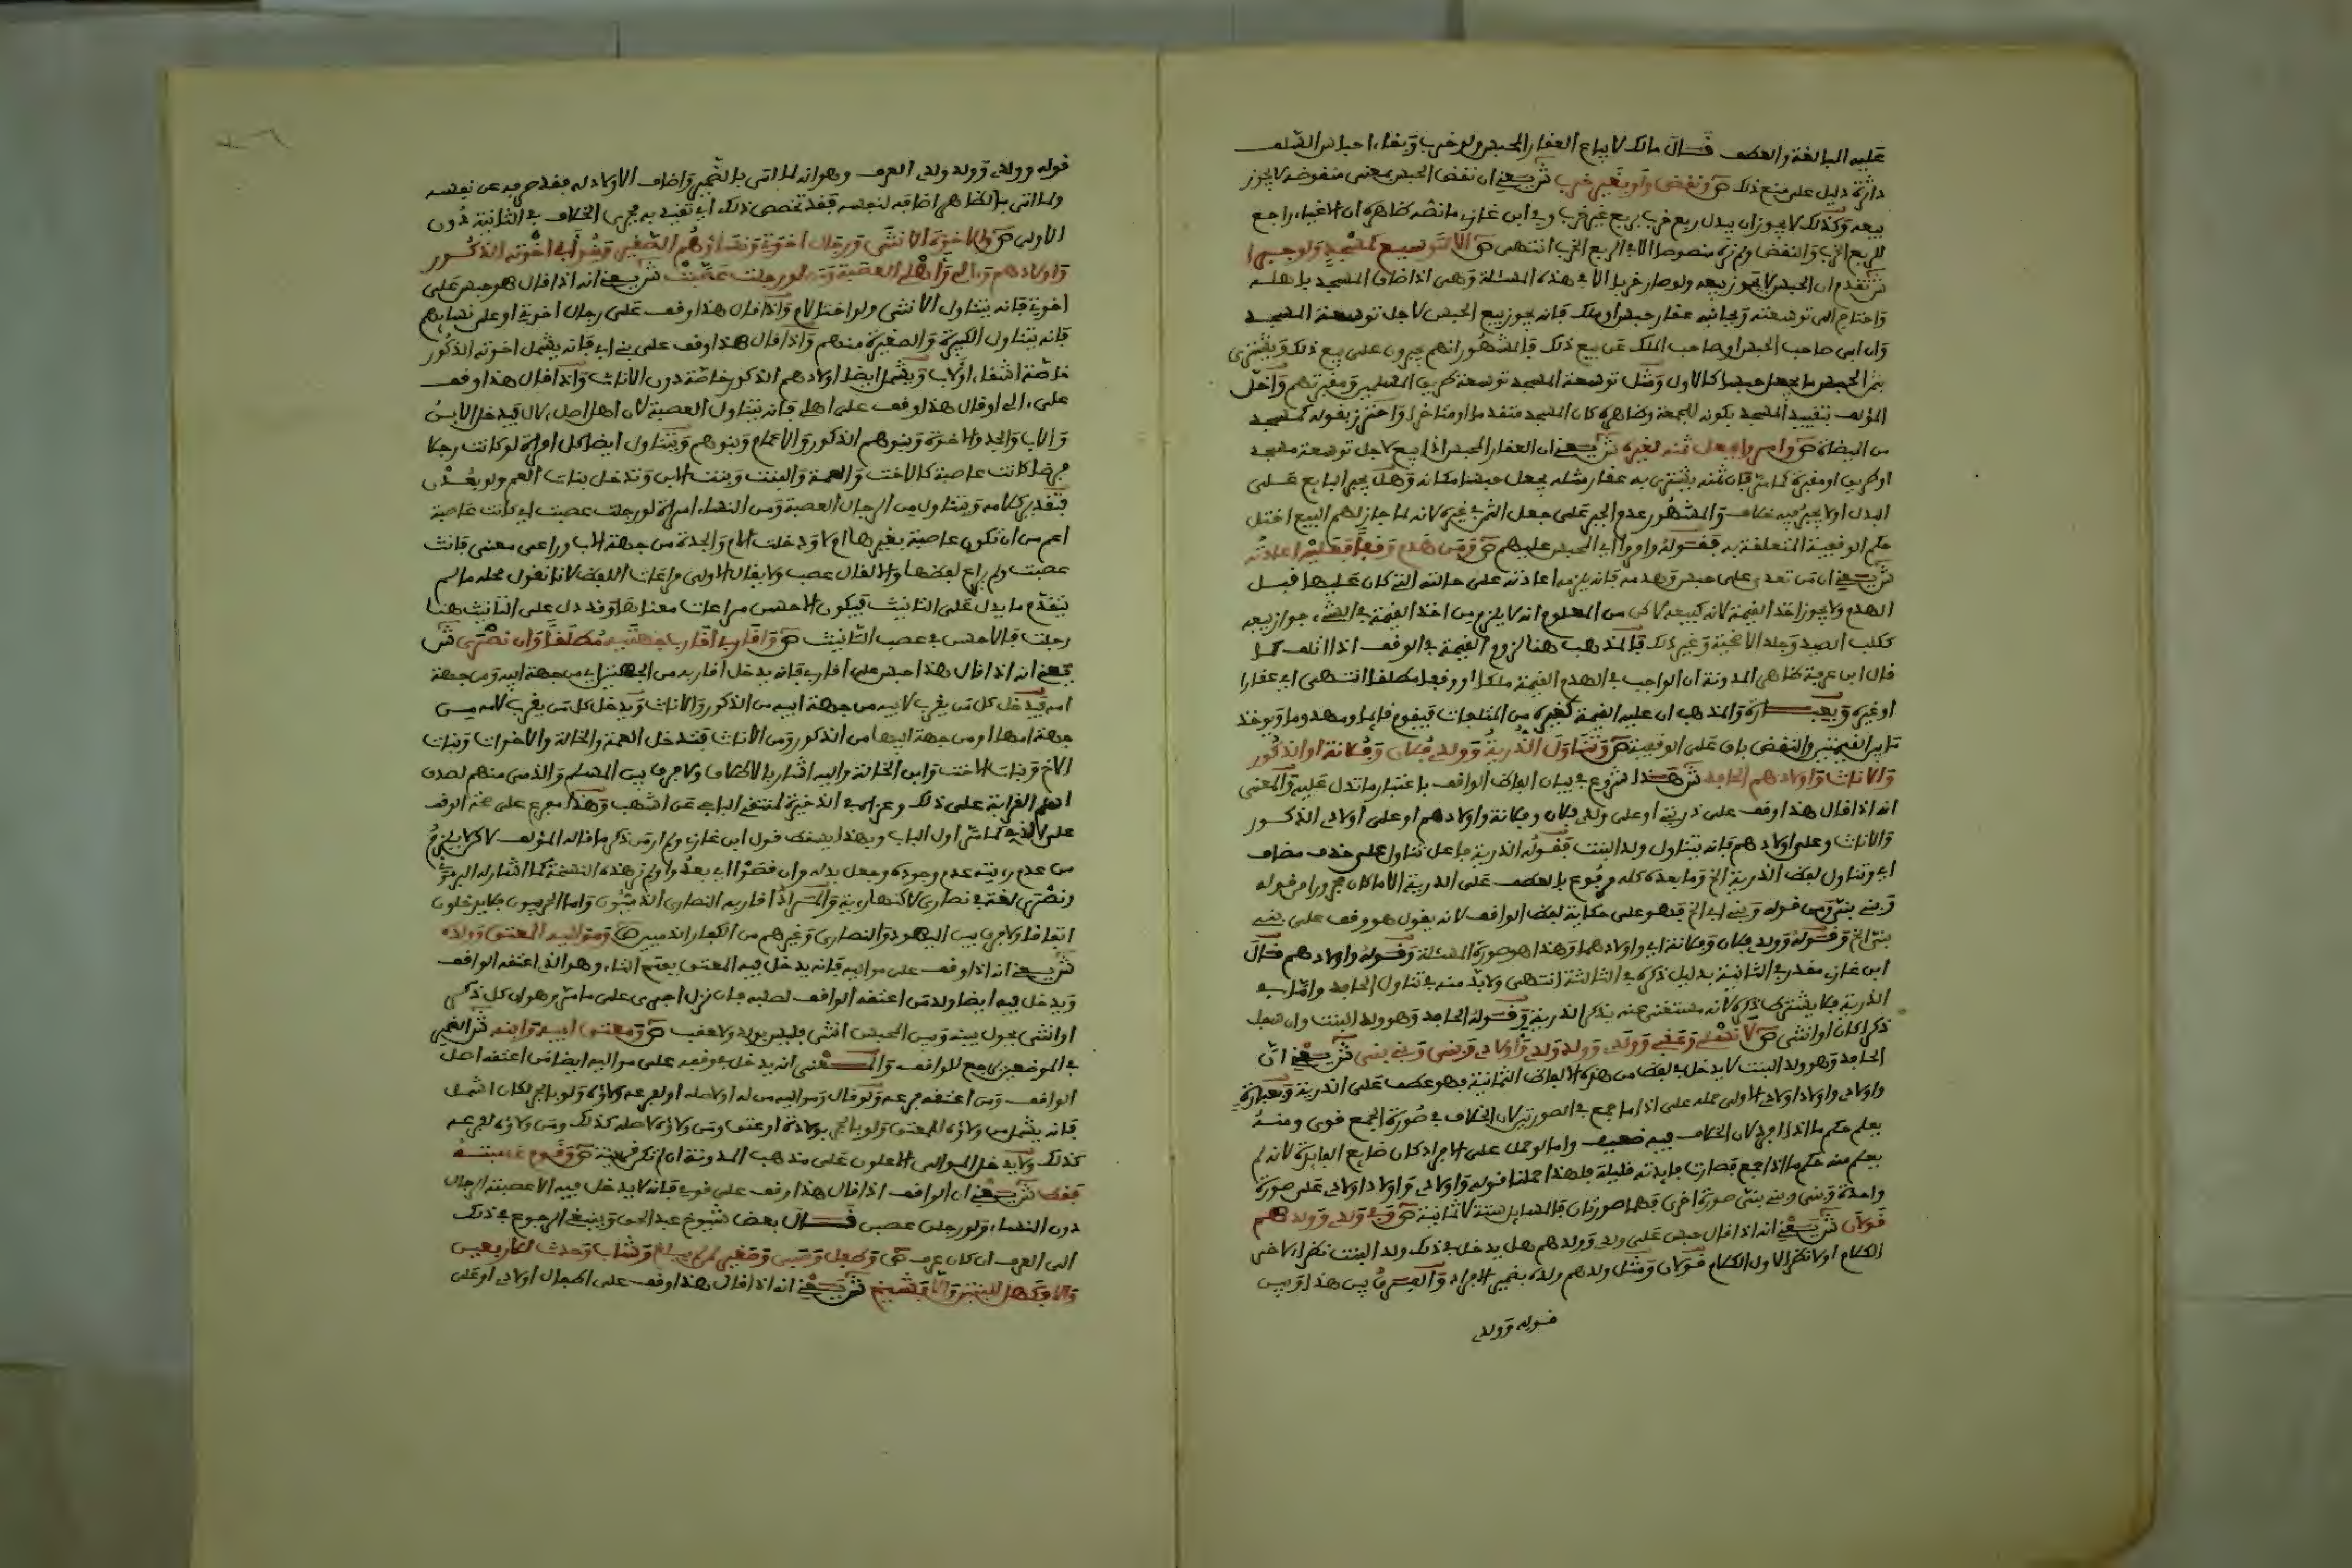 عليه المبالغة والعطف قال مالك لا يباع العقار المحبس ولو خرب وبقاء احباس السلف
داثرة دليل على منع ذلك ص ونقض ولو بغير خرب ش يعني ان نقض الحبس بمعنى منقوضه لا يجوز
بيعه وكذلك لا يجوز ان يبدل ربع خرب بربع غير خرب وفي ابن غازي ما نصه ظاهره ان الاغياء راجع
للربع الخرب والنقض ولم نره منصوصا الا في الربع الخرب انتهى ص الا لتوسيع كمسجد ولو جبرا
ش تقدم ان الحبس لا يجوز بيعه ولو صار خربا الا في هذه المسئلة وهي اذا ضاق المسجد باهله
واحتاج الى توسعته وبجانبه عقار حبس او ملك فانه يجوز بيع الحبس لاجل توسعة المسجد
وان ابى صاحب الحبس او صاحب الملك عن بيع ذلك فالمشهور انهم يجبرون على بيع ذلك ويشترى
بثمن الحبس ما يجعل حبسا كالاول ومثل توسعة المسجد توسعة طريق المسلمين ومقبرتهم واخل
المؤلف بتقييد المسجد بكونه للجمعة وظاهره كان المسجد متقدما او متاخرا واحترز بقوله كمسجد
من الميضاة ص وامروا بجعل ثمنه لغيره ش يعني ان العقار المحبس اذا بيع لاجل توسعة مسجد
او طريق او مقبرة كما مر فان ثمنه يشترى به عقار مثله يجعل حبسا مكانه وهل يجبر البايع على
البدل او لا يجبر فيه خلاف والمشهور عدم الجبر على جعل الثمن في غيره لانه لما جاز لهم البيع اختل
حكم الوقفية المتعلقة به فقوله وامروا اي المحبس عليهم ص ومن هدم وقفا فعليه اعادته
ش يعني ان من تعدى على حبس وهدمه فانه يلزمه اعادته على حالته التي كان عليها قبل
الهدم ولا يجوز اخذ القيمة لانه كبيعه لاكن من المعلوم انه لا يلزم من اخذ القيمة في الشيء جواز بيعه
ككلب الصيد وجلد الاضحية وغير ذلك فالمذهب هنا لزوم القيمة في الوقف اذا اتلف كما
قال ابن عرفة ظاهر المدونة ان الواجب في الهدم القيمة ملكا او وقفا مطلقا انتهى اي عقارا
او غيره وبعبارة والمذهب ان عليه القيمة كغيره من المتلفات فيقوم قايما ومهدوما ويوخذ
ما بين القيمتين والنقض باق على الوقفية ص وتناول الذرية وولدي فلان وفلانة او الذكور
والاناث واولادهم الحافد ش هذا شروع في بيان الفاظ الواقف باعتبار ما تدل عليه والمعنى
انه اذا قال هذا وقف على ذريتي او على ولدي فلان وفلانة واولادهم او على اولادي الذكور
والاناث وعلى اولادهم فانه يتناول ولد البنت فقوله الذرية فاعل تناول على حذف مضاف
اي وتناول لفظ الذرية الخ وما بعده كله مرفوع بالعطف على الذرية الا ما كان مجرورا من قوله
وبني بنتي ومن قوله وبني ابي الخ فهو على حكاية لفظ الواقف لانه يقول هو وقف على بني
بنتي الخ وقوله وولدي فلان وفلانة اي واولادهما وهذا هو صورة المسئلة وقوله واولادهم قال
ابن غازي مقدر في الثانية بدليل ذكره في الثالثة انتهى ولا بد منه في تناول الحافد واما في
الذرية فلا يشترط ذكره لانه مستغنى عنه بذكر الذرية وقوله الحافد وهو ولد البنت وان سفل
ذكرا كان او انثى ص لا نسلي وعقبي وولدي وولد ولدي واولادي وبني وبني بني ش يعني ان
الحافد وهو ولد البنت لا يدخل في لفظ من هذه الالفاظ الثمانية فهو عطف على الذرية وبعبارة
واولادي واولاد اولادي الاولى حمله على اذا ما جمع في الصورتين لان الخلاف في صورة الجمع قوي ومنه
يعلم حكم ما اذا افرد لان الخلاف فيه ضعيف واما لو حمل على الافراد كان ضايع الفايدة لانه لم
يعلم منه حكم ما اذا جمع فصارت فايدته قليلة فلهذا حملنا قوله واولادي واولاد اولادي على صورة
واحدة وبني وبني بني صورة اخرى فهما صورتان فالمسايل ستة لا ثمانية ص وفي ولدي وولدهم
قولان ش يعني انه اذا قال حبس على ولدي وولدهم هل يدخل في ذلك ولد البنت نظرا لاخر
الكلام او لا نظرا لاول الكلام قولان ومثل ولدهم ولده بضمير الافراد والفرق بين هذا وبين
قوله وولدي
قوله وولدي وولد ولدي العرف وهو انه لما اتى بالضمير واضاف الاولاد له فقد صرفه عن نفسه
ولما اتى بالظاهر اضافه لنفسه فقد تخصص ذلك اي تقيد به فجرى الخلاف في الثانية دون
الاولى ص والاخوة الانثى ورجال اخوتي ونساؤهم الصغير وبنو ابي اخوته الذكور
واولادهم وءالي واهلي العصبة ومن لو رجلت عصبت ش يعني انه اذا قال هو حبس على
اخوتي فانه يتناول الانثى ولو اختا لام واذا قال هذا وقف على رجال اخوتي او على نسايهم
فانه يتناول الكبيرة والصغيرة منهم واذا قال هذا وقف على بني ابي فانه يشمل اخوته الذكور
خاصة اشقاء او لاب ويشمل ايضا اولادهم الذكور خاصة دون الاناث واذا قال هذا وقف
على ءالي او قال هذا وقف على اهلي فانه يتناول العصبة لان اهل اصل ءال فيدخل الابن
والاب والجد والاخوة وبنوهم الذكور والاعمام وبنوهم ويتناول ايضا كل امراة لو كانت رجلا
فرضا كانت عاصبة كالاخت والعمة والبنت وبنت الابن وتدخل بنات العم ولو بعدن
فتقدير كلامه ويتناول من الرجال العصبة ومن النساء امراة لو رجلت عصبت اي كانت عاصبة
اعم من ان تكون عاصبة بغيرها او لا ودخلت الام والجدة من جهة الاب وراعى معنى فانث
عصبت ولم يراع لفظها والا لقال عصب ولا يقال الاولى مراعات اللفظ لانا نقول محله ما لم
يتقدم ما يدل على التانيث فيكون الاحسن مراعات معناها وقد دل على التانيث هنا
رجلت فالاحسن في عصب التانيث ص واقاربي اقارب جهتيه مطلقا وان نصرى ش
يعني انه اذا قال هذا حبس على اقاربي فانه يدخل اقاربه من الجهتين اي من جهة ابيه ومن جهة
امه فيدخل كل من يقرب لابيه من جهة ابيه من الذكور والاناث ويدخل كل من يقرب لامه من
جهة امها او من جهة ابيها من الذكور ومن الاناث فتدخل العمة والخالة والاخوات وبنات
الاخ وبنات الاخت وابن الخالة واليه اشار بالاطلاق ولا فرق بين المسلم والذمي منهم لصدق
اسم القرابة على ذلك وعزاه في الذخيرة لمنتقى الباجي عن اشهب وهذا مفرع على صحة الوقف
على الذمي كما مر اول الباب وبهذا يسقط قول ابن غازي ولم ار من ذكر ما قاله المؤلف لاكن لا يلزم
من عدم رويته عدم وجوده وجعل بدله وان قصوا اي بعدوا ولم نر هذه النسخة كما اشار له البرموني
ونصرى لغة في نصارى لاكنها ردية والمراد اقاربه النصارى الذميون واما الحربيون فلا يدخلون
اتفاقا ولا فرق بين اليهود والنصارى وغيرهم من الكفار الذميين ص ومواليه المعتق وولده
ش يعني انه اذا وقف على مواليه فانه يدخل فيه المعتق بفتح التاء وهو الذي اعتقه الواقف
ويدخل فيه ايضا ولد من اعتقه الواقف لصلبه فان نزل اجري على ما مر وهو ان كل ذكر
او انثى يحول بينه وبين المحبس انثى فليس بولد ولا عقب ص ومعتق ابيه وابنه ش الضمير
في الموضعين يرجع للواقف والمعنى انه يدخل في وقفه على مواليه ايضا من اعتقه اصل
الواقف ومن اعتقه فرعه ولو قال ومواليه من له او لاصله او لفرعه ولاؤه ولو بالجر لكان اشمل
فانه يشمل من ولاؤه للمعتق ولو بالجر بولادة او عتق ومن ولاؤه لاصله كذلك ومن ولاؤه لفرعه
كذلك ولا يدخل الموالي الاعلون على مذهب المدونة ان لم تكن قرينة ص وقومه عصبته
فقط ش يعني ان الواقف اذا قال هذا وقف على قومي فانه لا يدخل فيه الا عصبته الرجال
دون النساء ولو رجلن عصبن قال بعض شيوخ عبد الحق وينبغي الرجوع في ذلك
الى العرف ان كان عرف ص وطفل وصبي وصغير لمن لم يبلغ وشاب وحدث للاربعين
والا فكهل للستين والا فشيخ ش يعني انه اذا قال هذا وقف على اطفال اولادي او على